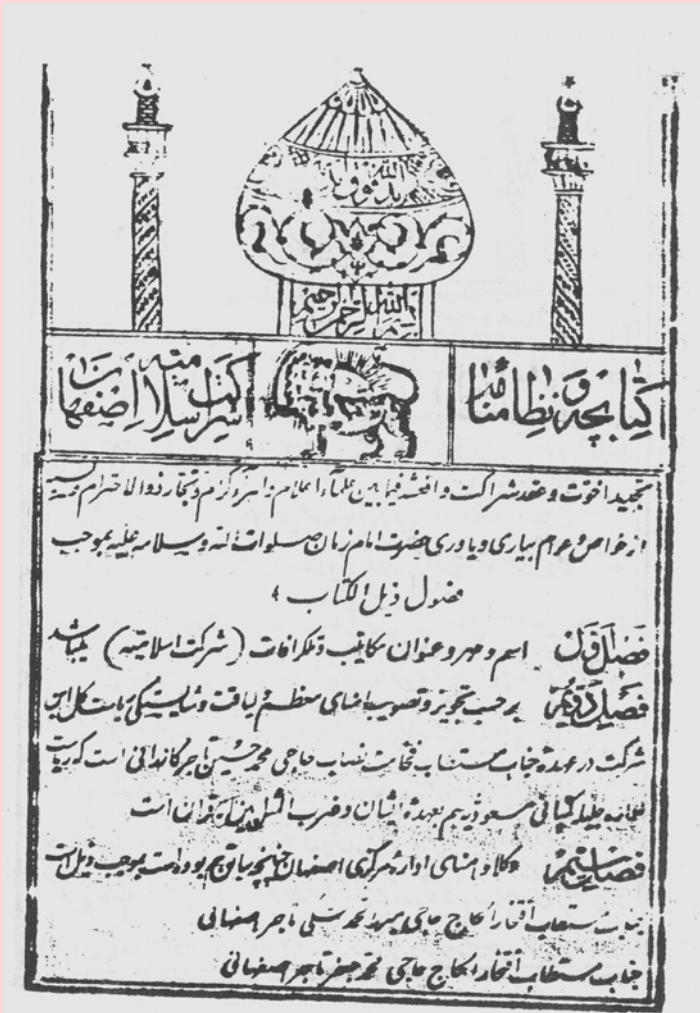 بسم الله الرحمن الرحیم
کتابچه و نظامنامه
شرکت اسلامیه اصفهان
تجدید اخوت و عقد شراکت واقعه فیمابین علماء اعلام و تجار ذوالاحترام
از خواص و عوام بیاری و یاوری حضرت امام زمان صلوات الله و سلامه علیه بموجب
فصول ذیل الکتاب
فصل اول اسم و مهر و عنوان مکاتیب و تلکرافات (شرکت اسلامیه) میباشد
فصل دویم بر حسب تجویز و تصویب امضای معظم لیاقت و شایستکی ریاست کل این
شرکت در عهدهٔ جناب مستطاب فخامت نصاب حاجی محمد حسین تاجر کازرانی است که ریاست
کمپانی مسعودیه هم بعهدهٔ ایشان و ضرب المثل ایران است
فصل سیم وکلا و امنای ادارهٔ مرکزی اصفهان چنانچه سابق هم بوده است بموجب ذیل است
جناب مستطاب افتخار الحاج حاجی تاجر اصفهانی
جناب مستطاب افتخار الحاج حاجی محمد جعفر تاجر اصفهانی